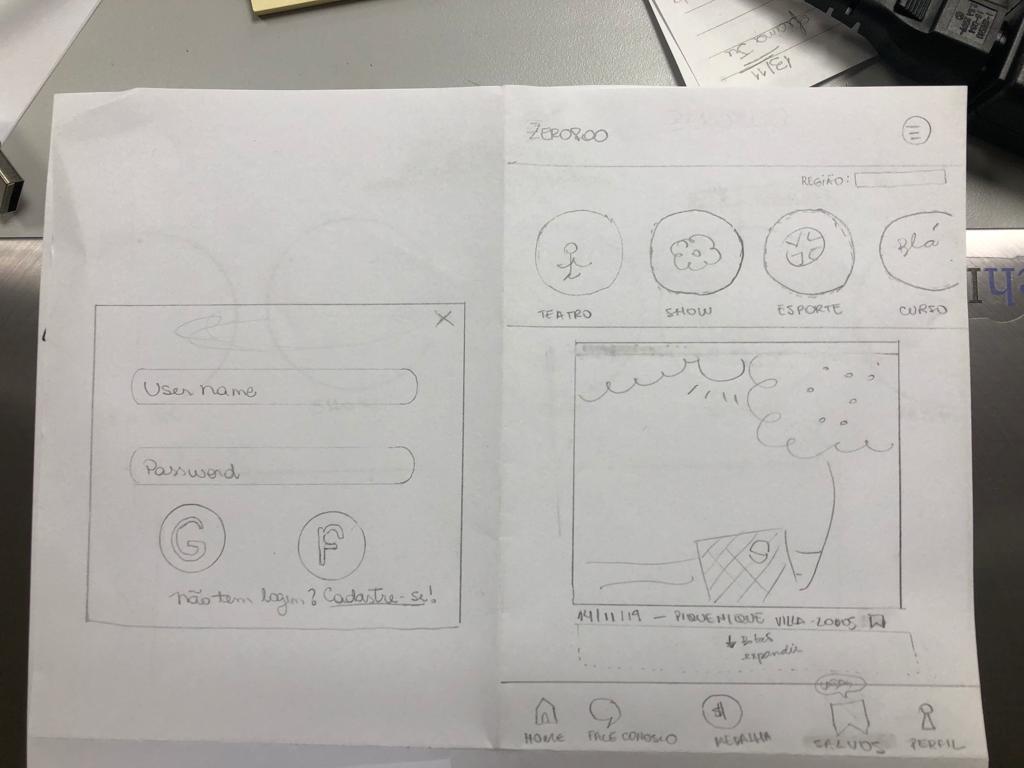 13/11
User name
Password
G
F
não tem login? Cadastre-se!
ZERO800
REGIÃO:
Blá
TEATRO
SHOW
ESPORTE
CURSO
14/11/19 - PIQUENIQUE VILLA-LOBOS
expandir
HOME
FALE CONOSCO
MEDALHA
SALVOS
PERFIL